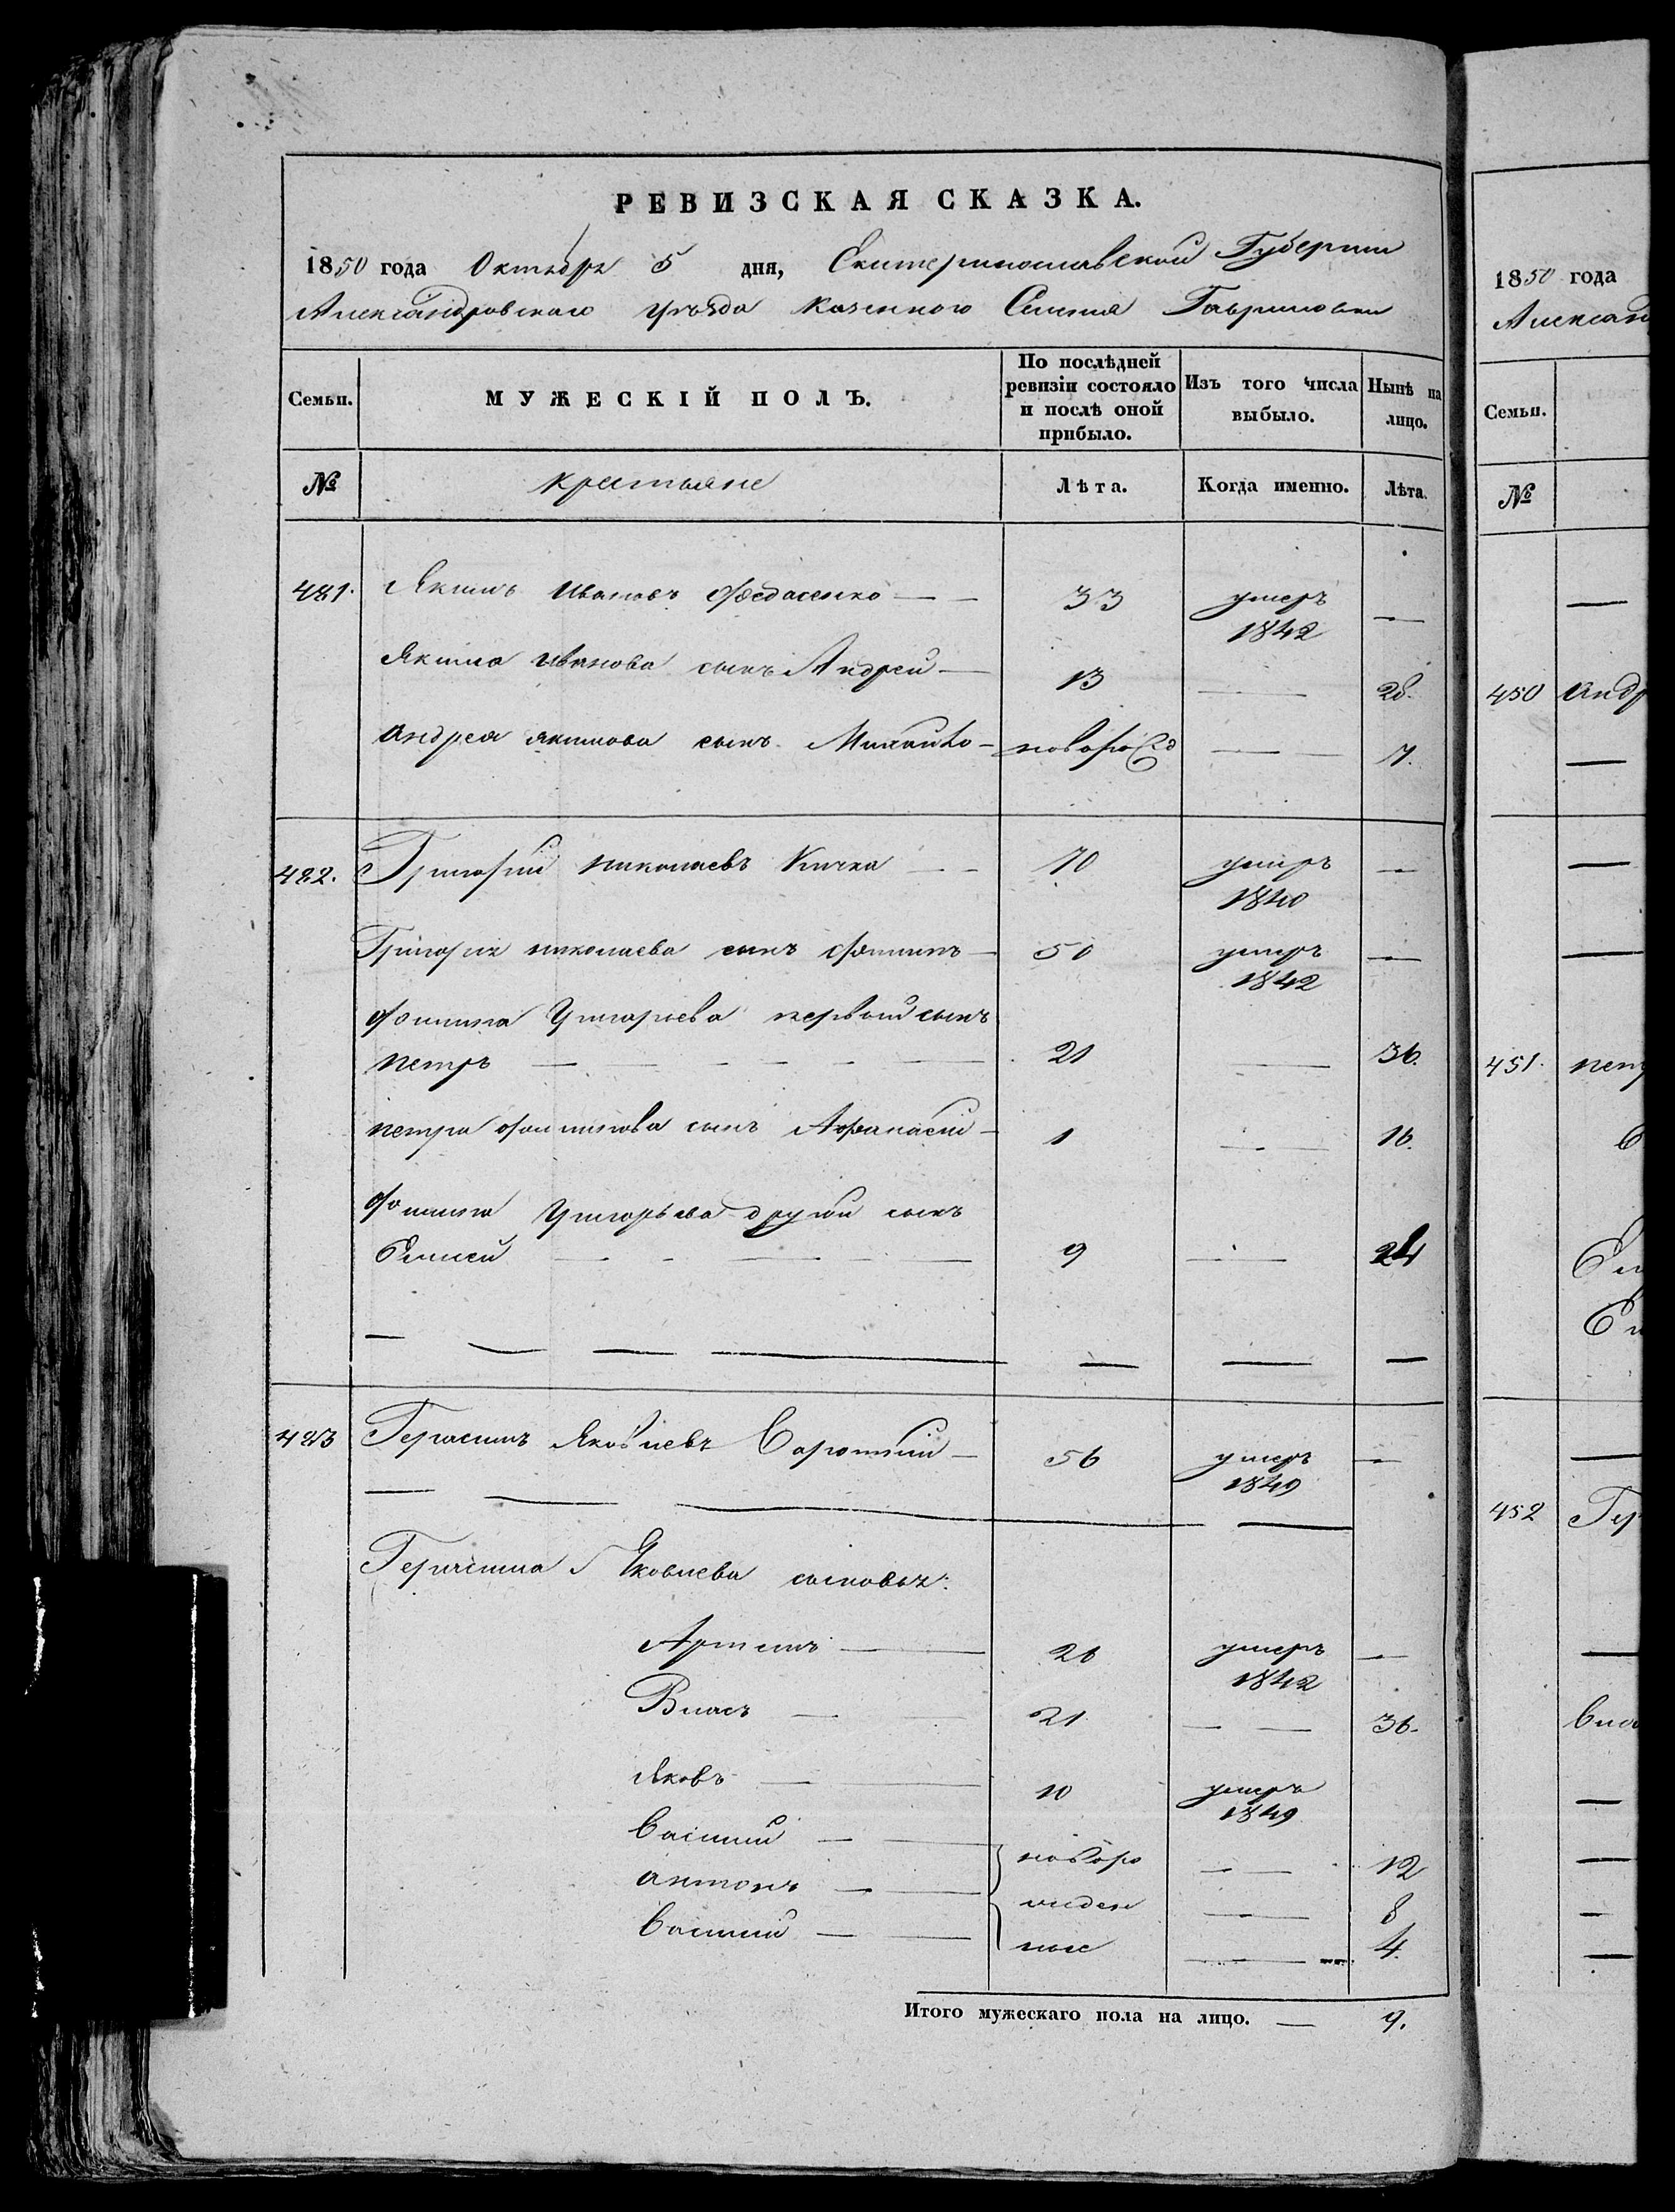 РЕВИЗСКАЯ СКАЗКА.
1850 года Октября 5 дня, Екатеринославской Губернии
Александровского уѣзда казенного Селенія Гавриловки
Семьи.
МУЖЕСКІЙ ПОЛЪ.
По послѣдней ревизіи состояло и послѣ оной прибыло.
Изъ того числа выбыло.
Нынѣ на лицо.
№ крестьяне Лѣта. Когда именно. Лѣта.
481. Якимъ Ивановъ Федасенко — — 33 умеръ 1842 —
Якима Иванова сынъ Андрей — 13 — 28.
Андрея якимова сынъ Михайло — новорожд — 7.
482. Григорій николаевъ Кичка — — 70 умеръ 1840 —
Григорія николаева сынъ Фотинъ — 50 умеръ 1842 —
Григорьева первый сынъ
петръ — — — — — 21 — 36.
петра сынъ Афанасій — 1 — 16.
Григорьева другой сынъ
Елисей — — — — 9 — 24
— — — — — — —
483 Герасимъ Яковлевъ — 56 умеръ 1849 —
— — — —
Герасима Яковлева сыновья:
Артемъ — 26 умеръ 1842 —
Власъ — — 21 — — 36.
Яковъ — — 10 умеръ 1849
Василій — — новоро — — 12
антонъ — — жден — 8
Василій — — ные — 4.
Итого мужескаго пола на лицо. — 9.
1850 года
Александ
Семьи.
№
—
450 Андр
—
—
—
451. петр
Ел
—
452 Гер
—
Влас
—
—
—
—